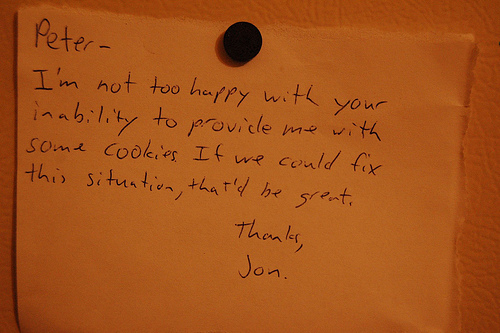 Peter-
I'm not too happy with your
inability to provide me with
some cookies. If we could fix
this situation, that'd be great.
Thanks,
Jon.